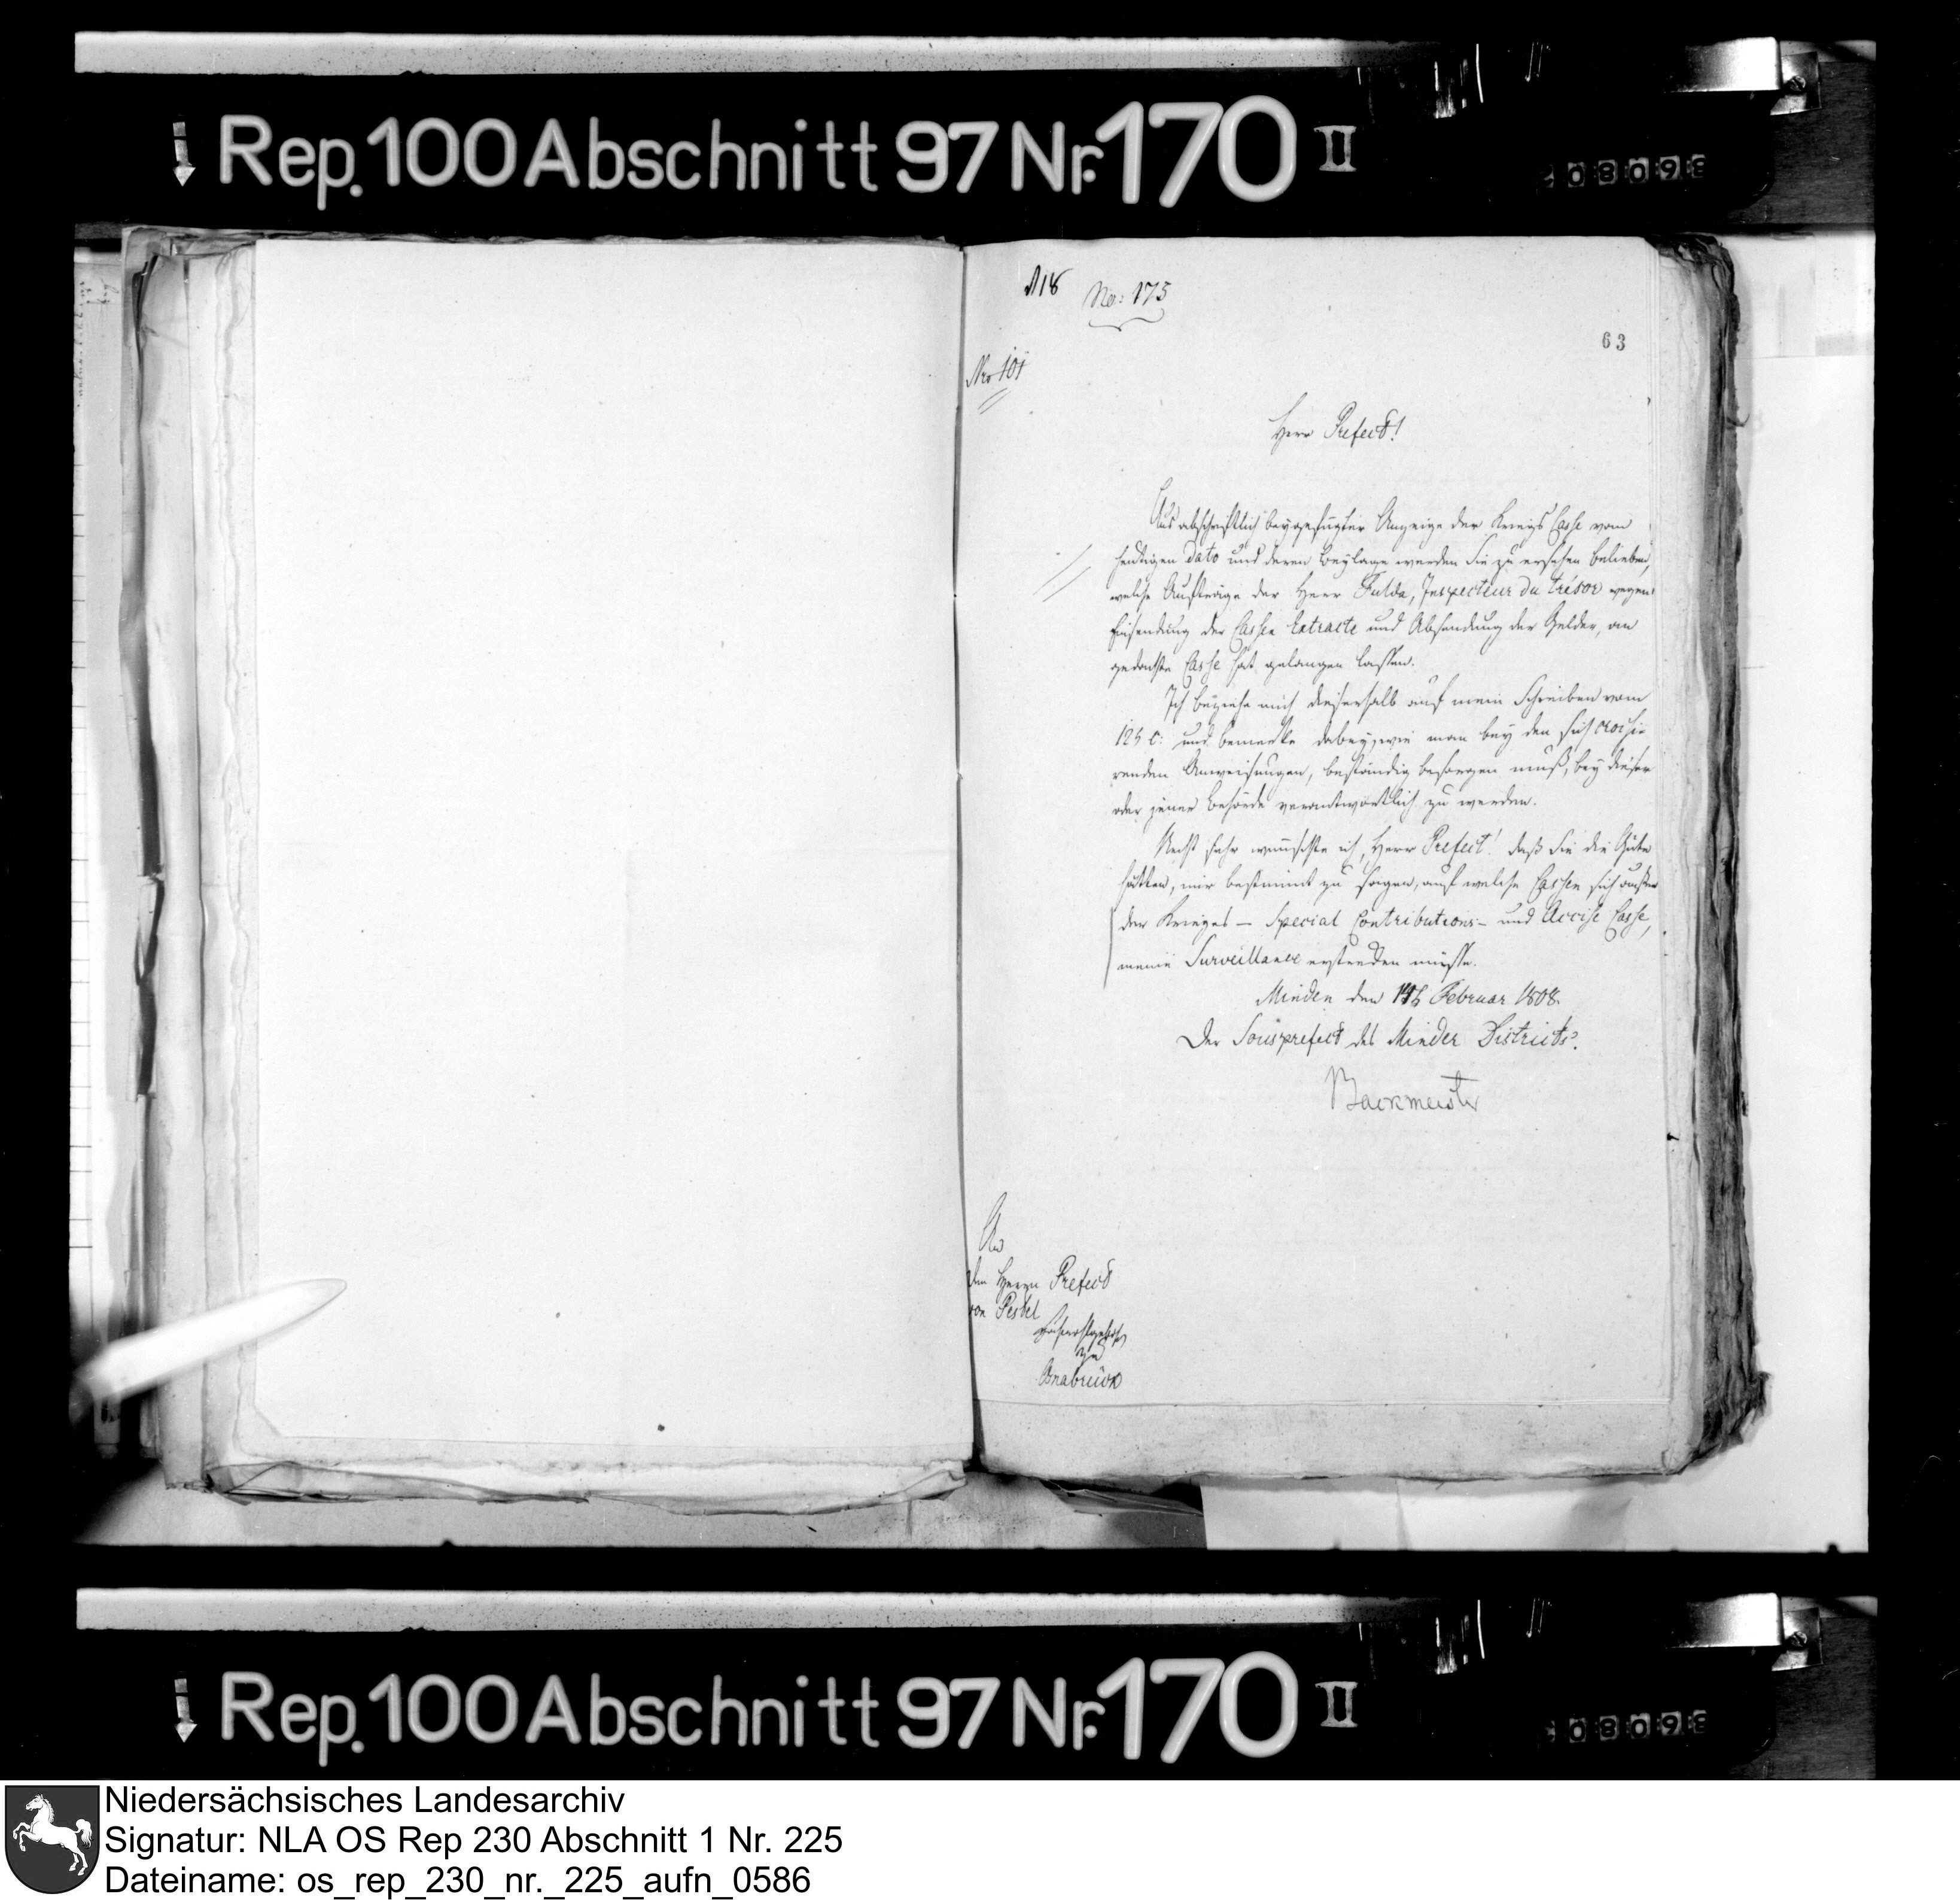 Rep. 100 Abschnitt 97 Nr. 170 II
No: 175
63
Nro 101
Herr Prefect!
Aus abschriftlich beygefügter Anzeige der Kriegs Casse vom
heutigen dato und deren Beylage werden Sie zu ersehen belieben,
welche Aufträge der Herr Fulda, Inspecteur du trésor wegen
Einsendung der Cassen Extracte und Absendung der Gelder, an
gedachte Casse hat gelangen lassen.
Ich beziehe mich dieserhalb auf mein Schreiben vom
12t c: und bemerke dabey, wie man bey den sich croisi-
renden Anweisungen, beständig besorgen muß, bey dieser
oder jener Behörde verantwortlich zu werden.
Recht sehr wünschte ich, Herr Prefect! daß Sie die Güte
hätten, mir bestimmt zu sagen, auf welche Cassen sich außer
der Krieges- Special Contributions- und Accise Casse,
meine Surveillance erstrecken müsse.
Minden den 14t Februar 1808.
Der Sousprefect des Minder Districts.
Backmeister
An
den Herrn Prefect
von Pestel
zu
Osnabrück
Rep. 100 Abschnitt 97 Nr. 170 II
Niedersächsisches Landesarchiv
Signatur: NLA OS Rep 230 Abschnitt 1 Nr. 225
Dateiname: os_rep_230_nr._225_aufn_0586